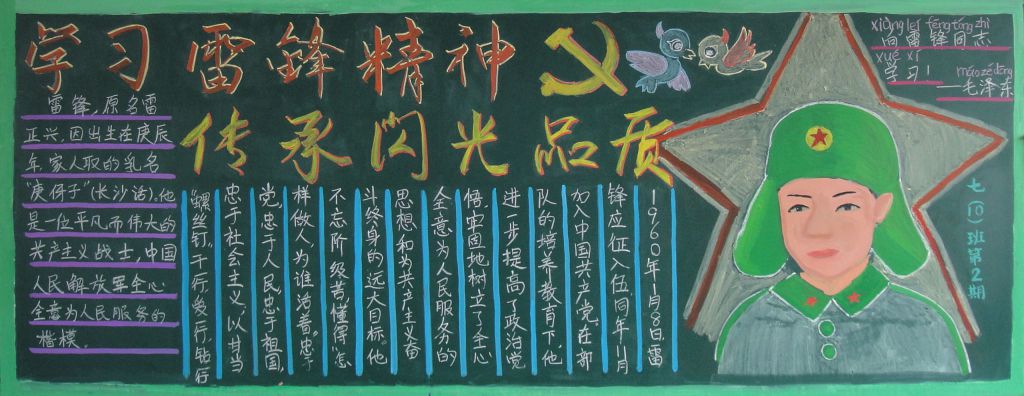 学习雷锋精神
传承闪光品质
雷锋,原名雷
正兴,因出生在庚辰
年家人取的乳名
“庚伢子”(长沙话)。他
是一位平凡而伟大的
共产主义战士,中国
人民解放军全心
全意为人民服务的
楷模。
1960年1月8日,雷
锋应征入伍。同年11月
加入中国共产党。在部
队的培养教育下,他
进一步提高了政治党
悟,牢固地树立了全心
全意为人民服务的
思想和为共产主义奋
斗终身的远大目标。他
不忘阶级苦,懂得“怎
样做人,为谁活着。忠于
党,忠于人民,忠于祖国,
忠于社会主义,以甘当
“螺丝钉”,干一行爱一行,钻一行
xiàng léi fēng tóng zhì
向雷锋同志
xué xí
学习!
máo zé dōng
——毛泽东
七(10)班第2期